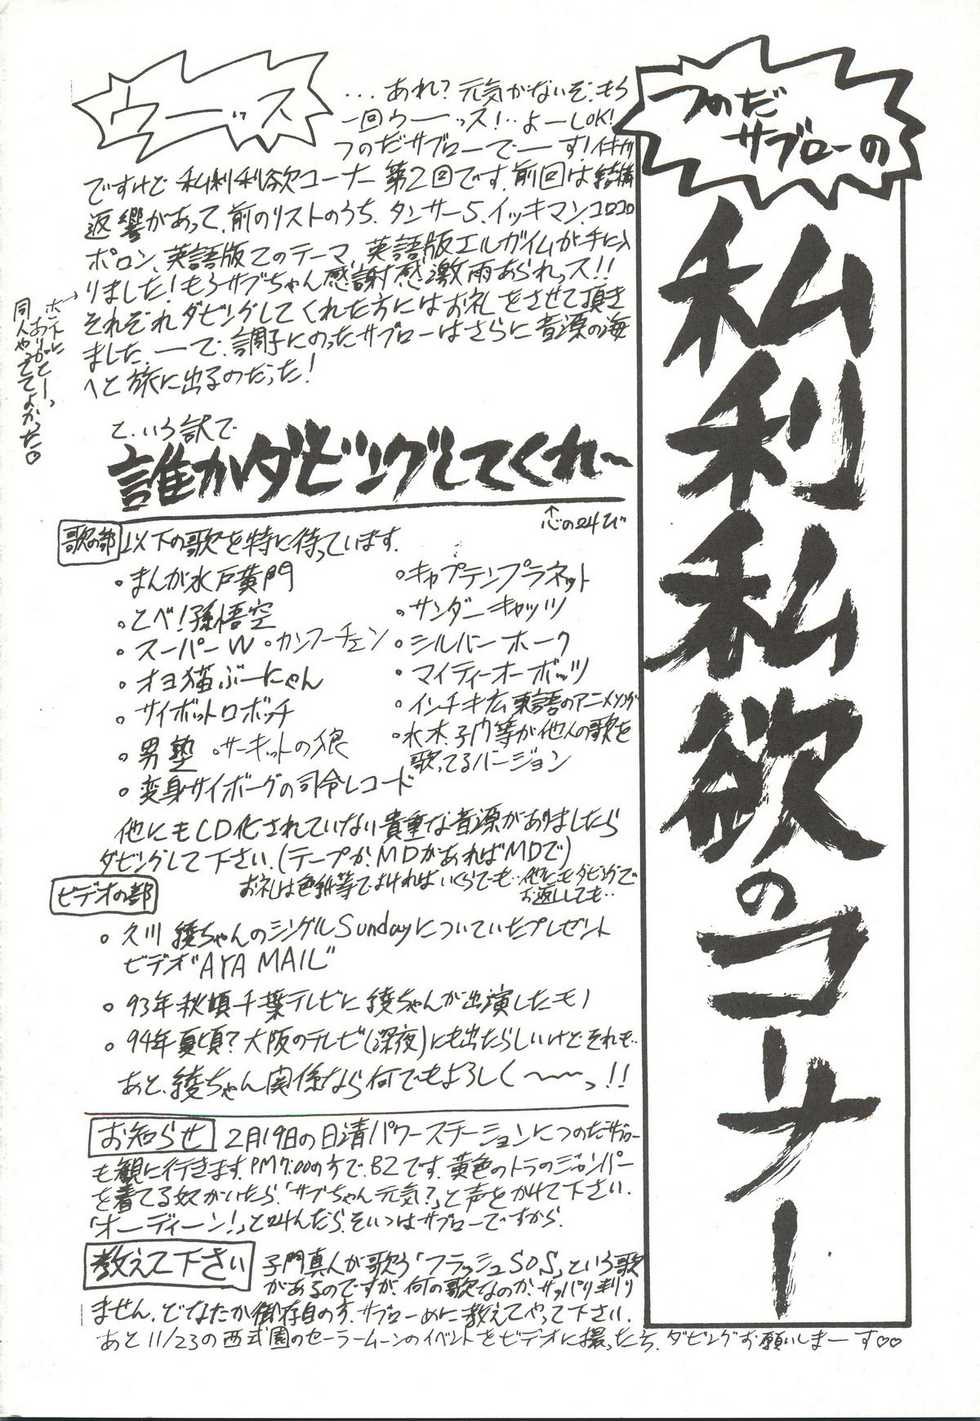 つのだ
サブローの
私利私欲のコーナー
ウーッス
...あれ?元気がないぞ.もう
一回ウーッス!..よーしOK!
つのだサブローでーす!イキナリ
ですけど私利私欲コーナー第2回です.前回は結構
返響があって、前のリストのうち、タンサー5、イッキマン、コロコロ
ポロン、英語版Zのテーマ、英語版エルガイムが手に入
りました!もうサブちゃん感謝感激雨あられっス!!
それぞれダビングしてくれた方にはお礼をさせて頂き
ました.ーで、調子にのったサブローはさらに音源の海
へと旅に出るのだった!
ホントに
ありがとーっ
同人やっててよかった。
と.いう訳で
誰かダビングしてくれ〜
↑心の叫び
歌の部 以下の歌を特に待っています.
・まんが水戸黄門
・とべ!孫悟空
・スーパーW ・カンフーチェン
・オヨ猫ぶーにゃん
・サイボットロボッチ
・男塾 ・サーキットの狼
・変身サイボーグの司令レコード
・キャプテンプラネット
・サンダーキャッツ
・シルバーホーク
・マイティーオーボッツ
・インチキ広東語のアニメソング
・水木、子門等が他人の歌を
歌ってるバージョン
他にもCD化されていない貴重な音源がありましたら
ダビングして下さい.(テープか、MDがあればMDで)
お礼は色紙等でよければいくらでも..他にもダビングで
お返ししても..
ビデオの部
・久川綾ちゃんのシングルSundayについていたプレゼント
ビデオ"AYA MAIL"
・93年秋頃千葉テレビに綾ちゃんが出演したモノ
・94年夏頃?大阪のテレビ(深夜)にも出たらしいけどそれも..
あと、綾ちゃん関係なら何でもよろしく〜〜っ!!
お知らせ 2月19日の日清パワーステーションにつのだサブロー
も観に行きます.PM7:00の方で、B2です.黄色のトラのジャンパー
を着てる奴がいたら、「サブちゃん元気?」と声をかけて下さい.
「オーディーン!」と叫んだら、そいつはサブローですから.
教えて下さい 子門真人が歌う「フラッシュSOS」という歌
があるのですが、何の歌なのか、サッパリ判り
ません.どなたか御存知の方、サブローめに教えてやって下さい.
あと11/23の西武園のセーラームーンのイベントをビデオに撮った方、ダビングお願いしまーす♡♡